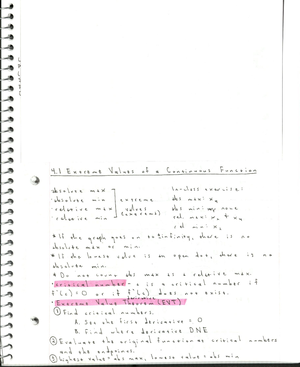 4.1 Extreme Values of a Continuous Function
absolute max
absolute min
relative max
relative min
extreme
values
(extrema)
in-class exercise:
abs max: x₂
abs min: none
rel. max: x₂ + x₄
rel min: x₃
* If the graph goes on infinity, there is no
absolute max or min.
* If the lowest value is an open dot, there is no
absolute min.
* Do not count abs max as a relative max.
critical number - c is a critical number if
f'(c) = 0 or if f'(c) does not exist.
Extreme Value Theorem (EVT)
① Find critical numbers.
A. Set the first derivative = 0
B. Find where derivative DNE
② Evaluate the original function at critical numbers
and the endpoints.
③ highest value = abs max, lowest value = abs min